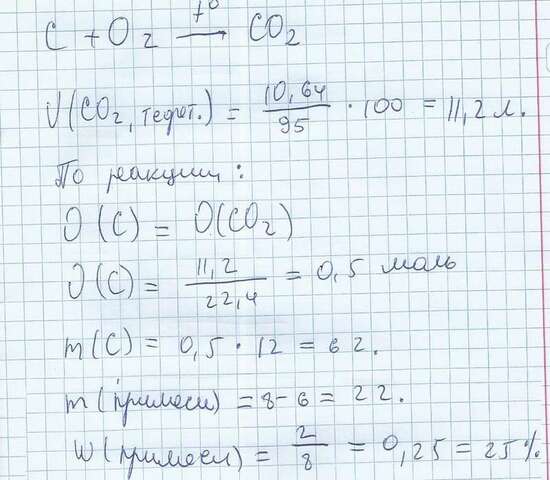 C + O₂ —t°→ CO₂
V(CO₂, теорт.) = 10,64/95 · 100 = 11,2 л.
По реакции:
ν(C) = ν(CO₂)
ν(C) = 11,2/22,4 = 0,5 моль
m(C) = 0,5 · 12 = 6 г.
m(примеси) = 8 - 6 = 2 г.
W(примеси) = 2/8 = 0,25 = 25%